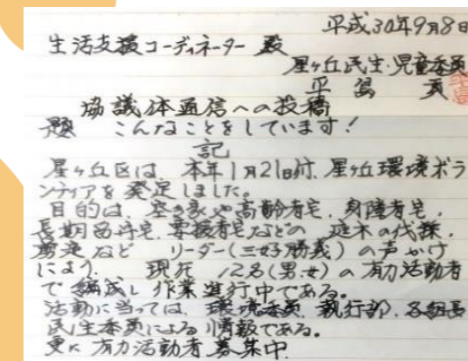 平成30年9月8日
生活支援コーディネーター 殿
星ヶ丘民生・児童委員
平 貢
協議体通信への投稿
題 こんなことをしています!
記
星ヶ丘区は、本年1月21日付、星ヶ丘環境ボラ
ンティアを発足しました。
目的は、空き家や高齢者宅、身障者宅、
長期留守宅、要援者宅などの 庭木の伐採、
剪定など リーダー(三好勝義)の声かけ
により、 現在 12名(男、女)の有力活動者
で編成し作業進行中である。
活動に当っては、環境委員、執行部、各組長
民生委員による情報である。
更に有力活動者募集中